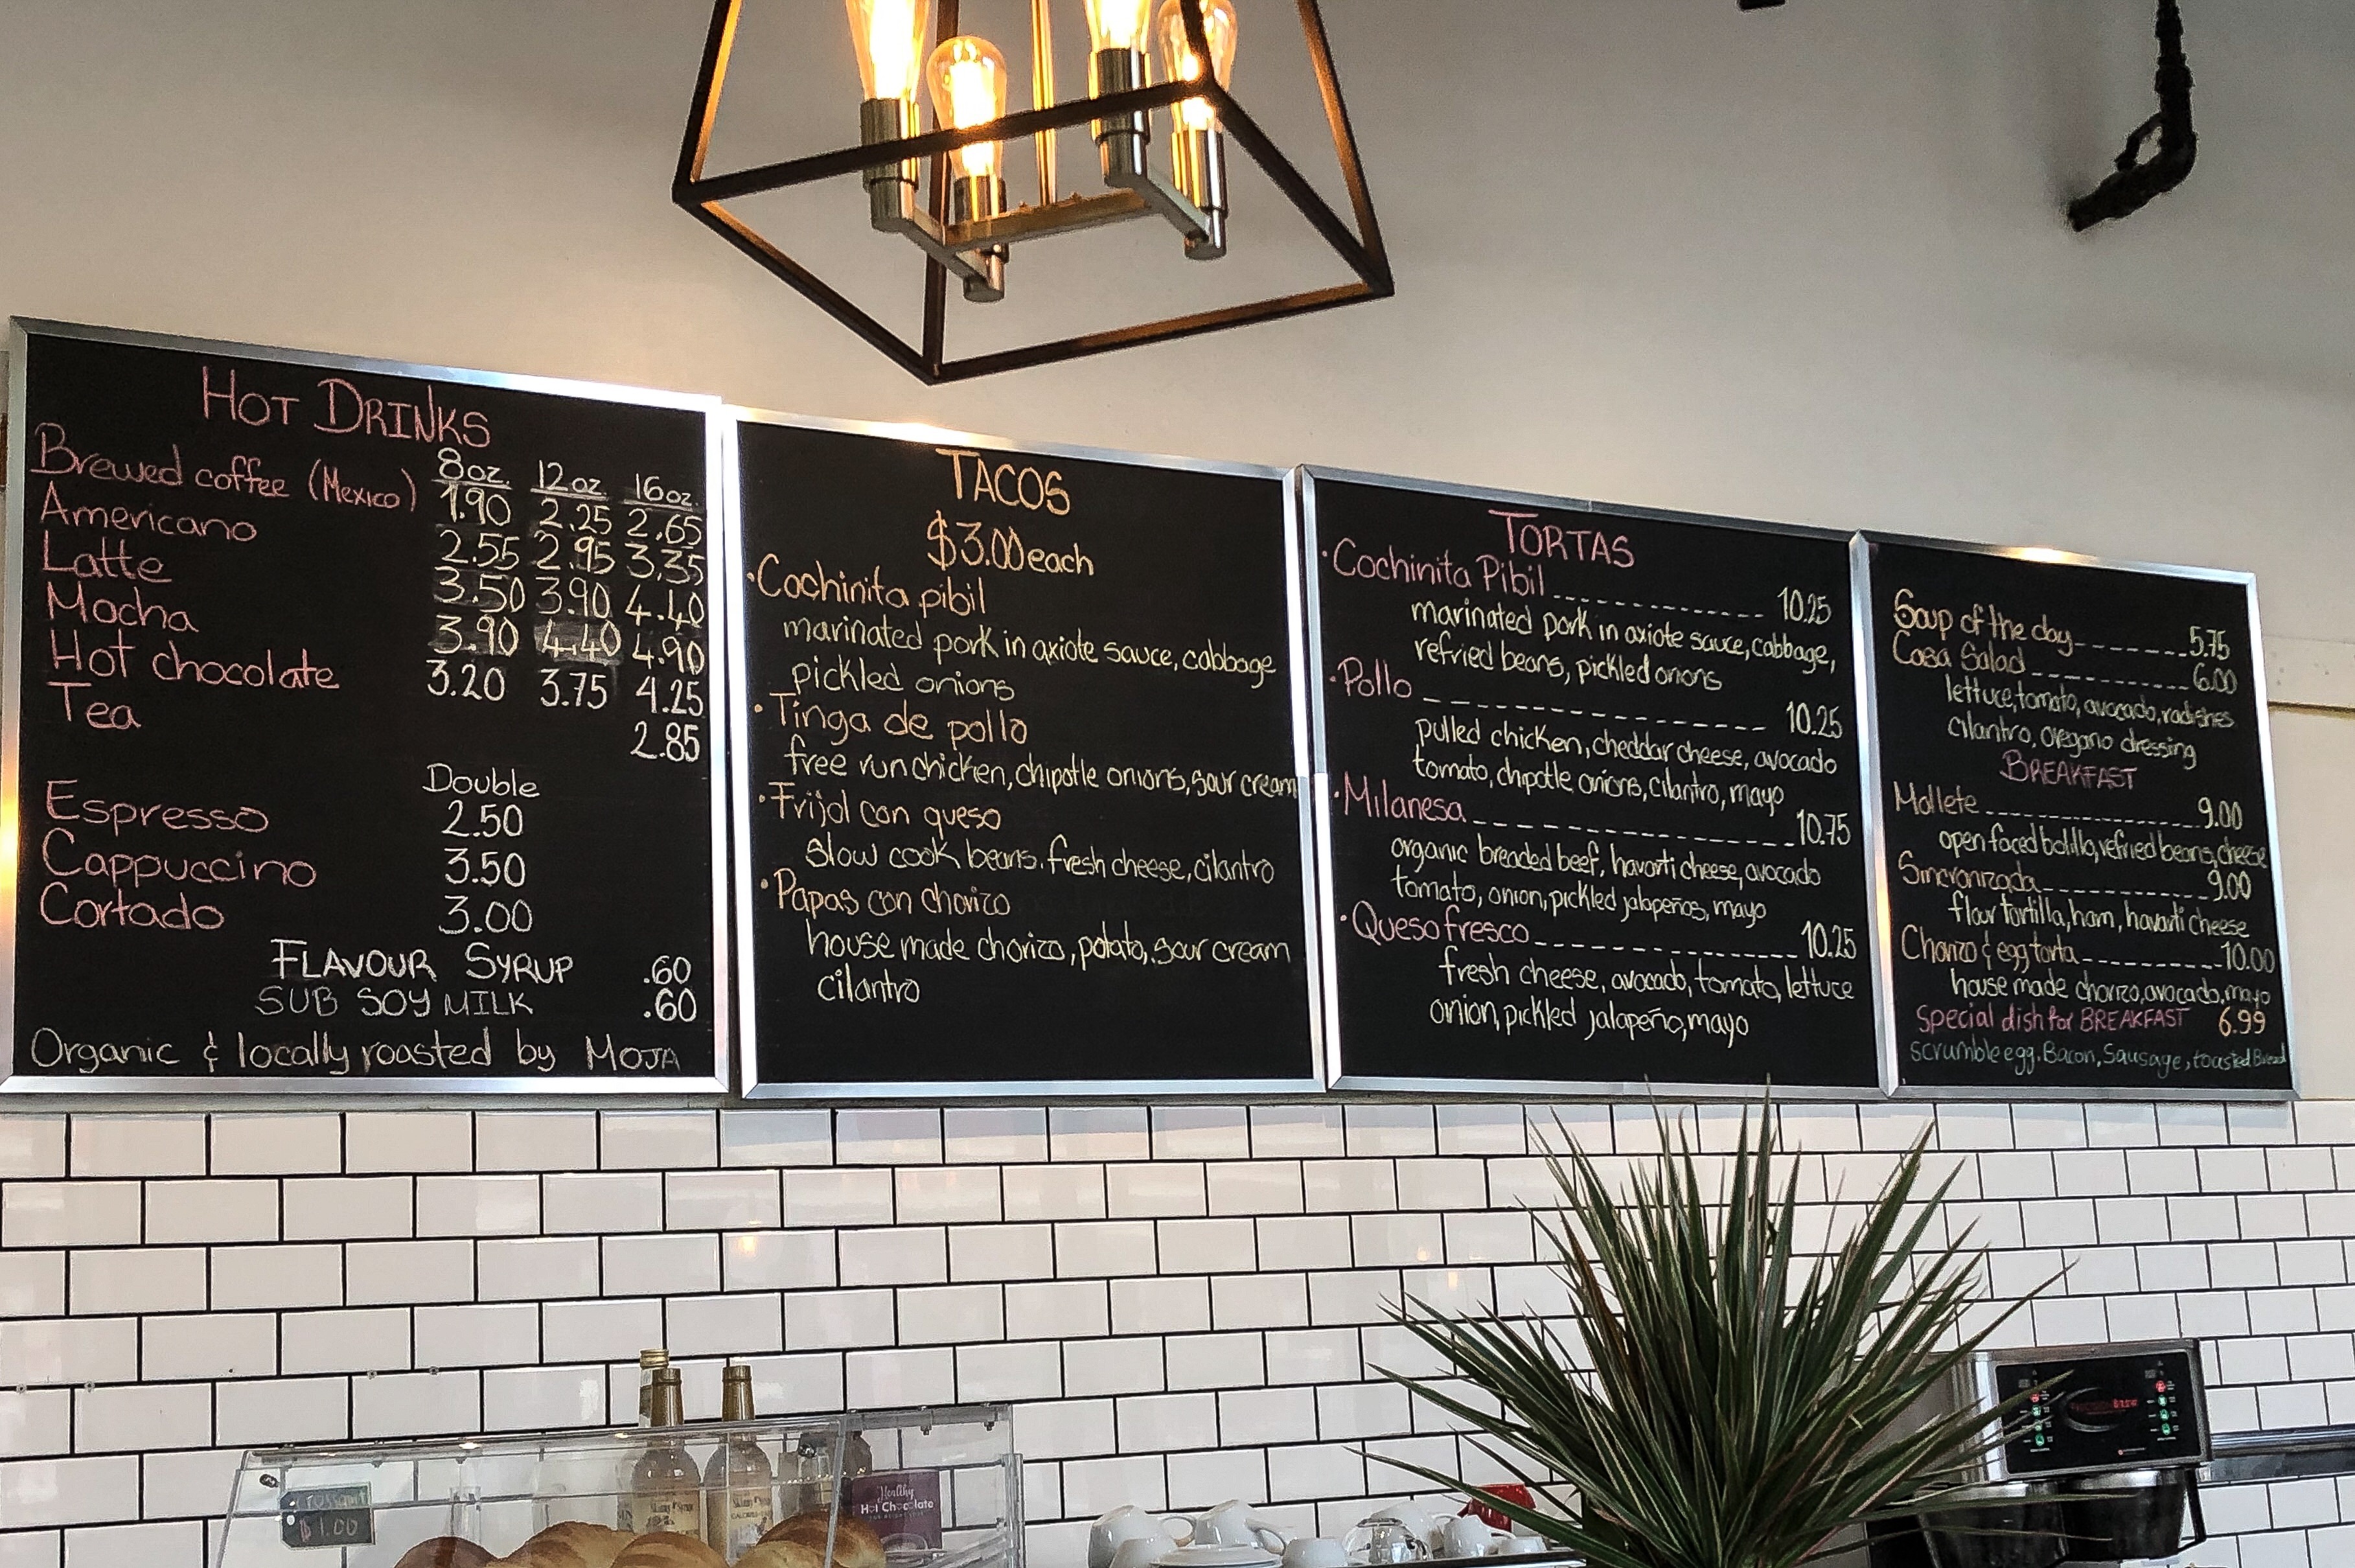 HOT DRINKS
8oz. 12oz. 16oz.
Brewed coffee (Mexico) 1.90 2.25 2.65
Americano 2.55 2.95 3.35
Latte 3.50 3.90 4.40
Mocha 3.90 4.40 4.90
Hot chocolate 3.20 3.75 4.25
Tea 2.85
Double
Espresso 2.50
Cappuccino 3.50
Cortado 3.00
FLAVOUR SYRUP .60
SUB SOY MILK .60
Organic & locally roasted by MOJA
TACOS
$3.00 each
·Cochinita pibil
marinated pork in axiote sauce, cabbage
pickled onions
·Tinga de pollo
free run chicken, chipotle onions, sour cream
·Frijol con queso
slow cook beans. fresh cheese, cilantro
·Papas con chorizo
house made chorizo, potato, sour cream
cilantro
TORTAS
·Cochinita Pibil 10.25
marinated pork in axiote sauce, cabbage,
refried beans, pickled onions
·Pollo 10.25
pulled chicken, cheddar cheese, avocado
tomato, chipotle onions, cilantro, mayo
·Milanesa 10.75
organic breaded beef, havarti cheese, avocado
tomato, onion, pickled jalapeños, mayo
·Queso fresco 10.25
fresh cheese, avocado, tomato, lettuce
onion, pickled jalapeño, mayo
Soup of the day 5.75
Casa Salad 6.00
lettuce, tomato, avocado, radishes
cilantro, oregano dressing
BREAKFAST
Mollete 9.00
open faced bolillo, refried beans, cheese
Sincronizada 9.00
flour tortilla, ham, havarti cheese
Chorizo & egg torta 10.00
house made chorizo, avocado, mayo
Special dish for BREAKFAST 6.99
scrumble egg. Bacon, Sausage, toasted Bread
$1.00
Healthy
Hot Chocolate